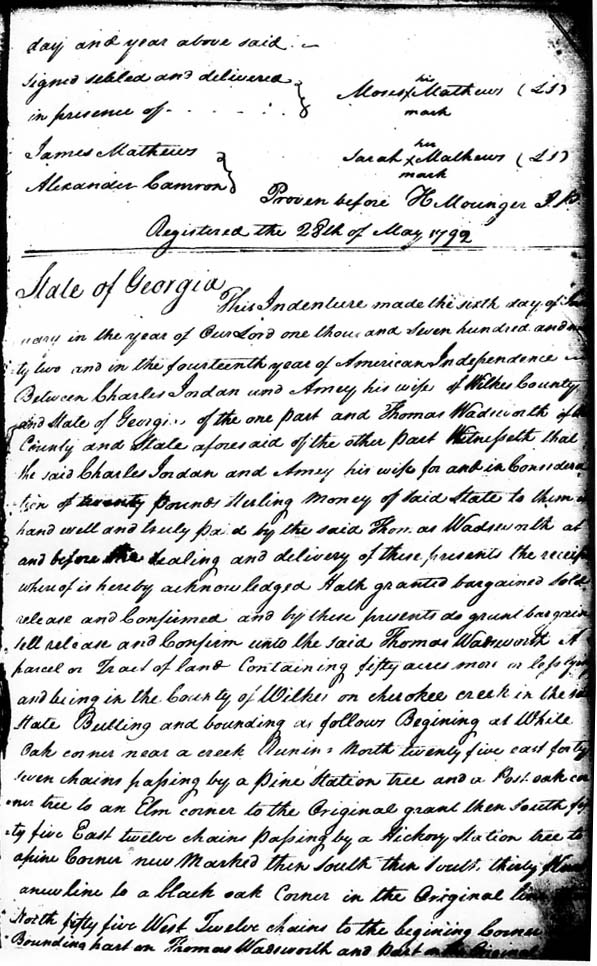 day and year above said
signed sealed and delivered
in presence of
his
Moses x Mathews (LS)
mark
James Mathews
Alexander Camron
his
Sarah x Mathews (LS)
mark
Proven before H Mounger J.P.
Registered the 28th of May 1792
State of Georgia
This Indenture made the sixth day of Jan
uary in the year of Our Lord one thousand Seven hundred and
ty two and in the fourteenth year of American Independence
Between Charles Jordan and Amey his wife of Wilkes County
and State of Georgia of the one part and Thomas Wadsworth of
County and State aforesaid of the other part Witnesseth that
the said Charles Jordan and Amey his wife for and in Considera
tion of twenty pounds Sterling money of said State to them in
hand well and truly paid by the said Thomas Wadsworth at
and before the sealing and delivery of these presents the receipt
whereof is hereby acknowledged Hath granted bargained Sold
release and Confirmed and by these presents do grant bargain
sell release and Confirm unto the said Thomas Wadsworth A
parcel or Tract of land Containing fifty acres more or less lying
and being in the County of Wilkes on cherokee creek in the
State Butting and bounding as follows Begining at White
Oak corner near a creek Runing North twenty five east forty
seven chains passing by a pine Station tree and a Post oak cor
ner tree to an Elm corner to the Original grant then South fif
ty five East twelve chains passing by a Hickory Station tree to
a pine Corner new Marked then South then South thirty
a new line to a black oak Corner in the Original line
North fifty five West Twelve chains to the begining Corner
Bounding part on Thomas Wadsworth and part on the Original